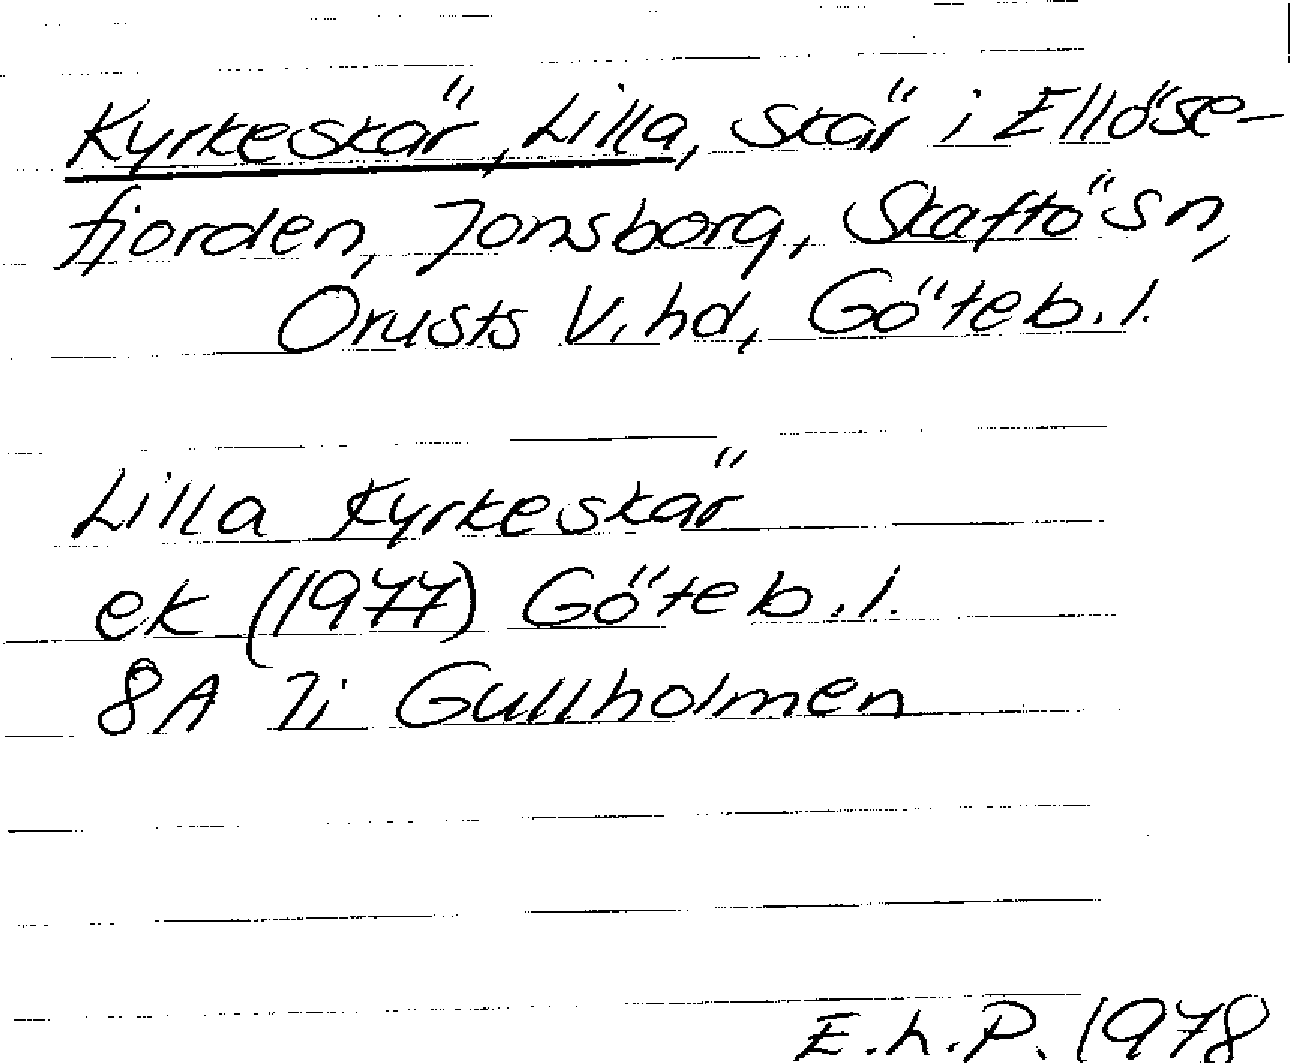 Kyrkeskär, Lilla, skär i Ellöse-
fjorden, Jonsborg, Skaftö sn,
Orusts V. hd, Göteb. l.
Lilla Kyrkeskär
ek (1977) Göteb. l.
8A 7i Gullholmen
E.L.P. 1978